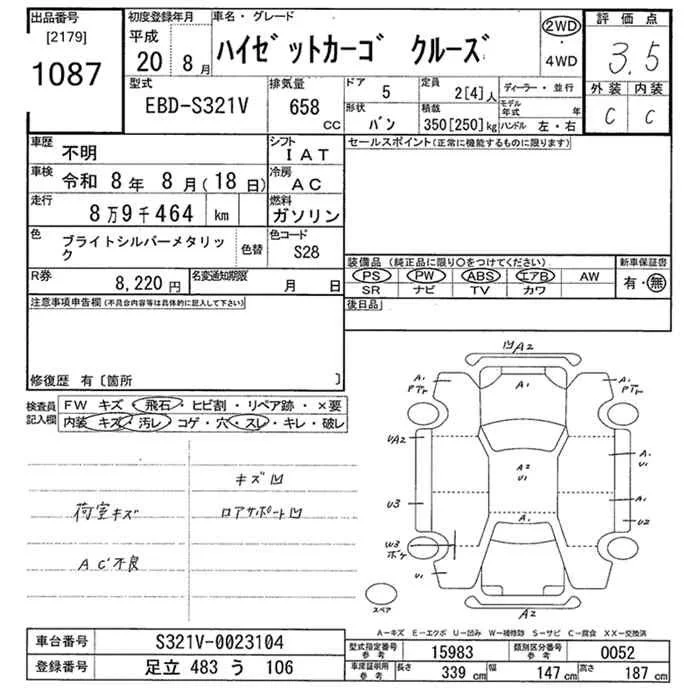 出品番号
[2179]
1087
初度登録年月
平成
20 8月
車名・グレード
ハイゼットカーゴ クルーズ
2WD
・
4WD
評価点
3.5
外装 内装
C C
型式
EBD-S321V
排気量
658
CC
ドア
5
定員
2[4]人
ディーラー・並行
形状
バン
積載
350[250]kg
モデル年式 年
ハンドル 左・右
車歴
不明
シフト
IAT
車検
令和 8年 8月(18日)
冷房
AC
走行
8万9千464 km
燃料
ガソリン
色
ブライトシルバーメタリック
色替
色コード
S28
R券
8,220円
名変通知期限
月 日
セールスポイント(正常に機能するものに限ります)
装備品(純正品に限り○をつけてください)
PS PW ABS エアB AW
SR ナビ TV カワ
新車保証書
有・無
後日品
注意事項申告欄(不具合内容等は具体的に記入して下さい)
修復歴 有〔箇所 〕
検査員
記入欄
FW キズ・飛石・ヒビ割・リペア跡・×要
内装 キズ・汚レ・コゲ・穴・スレ・キレ・破レ
キズ凹
荷室キズ
ロアサポート凹
AC不良
凹A2
A1
A1
PTr
A1
PTr
UA2
A2
U1
A1
U1
U3
A1
A1
U2
W3
ボケ
U1
A2
スペア
A−キズ E−エクボ U−凹み W−補修跡 S−サビ C−腐食 XX−交換済
車台番号
S321V-0023104
登録番号
足立 483 う 106
型式指定番号
参考
15983
類別区分番号
参考
0052
車庫証明用
参考
長さ
339 cm
幅
147 cm
高さ
187 cm